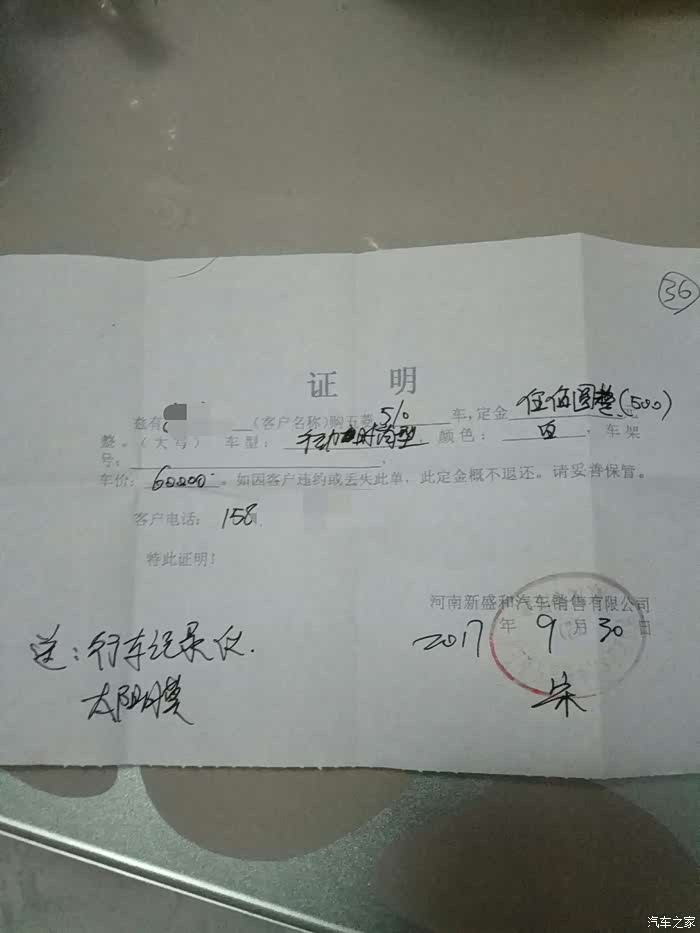 36
证 明
兹有 (客户名称)购五菱 510 车,定金 伍佰圆整(500)
整。(大写) 车型: 手动 时尚型 颜色: 白 车架
号:
车价: 60200 。如因客户违约或丢失此单,此定金概不退还。请妥善保管。
客户电话: 158
特此证明!
河南新盛和汽车销售有限公司
2017 年 9 月 30 日
送:行车记录仪.
太阳膜
宋
汽车之家